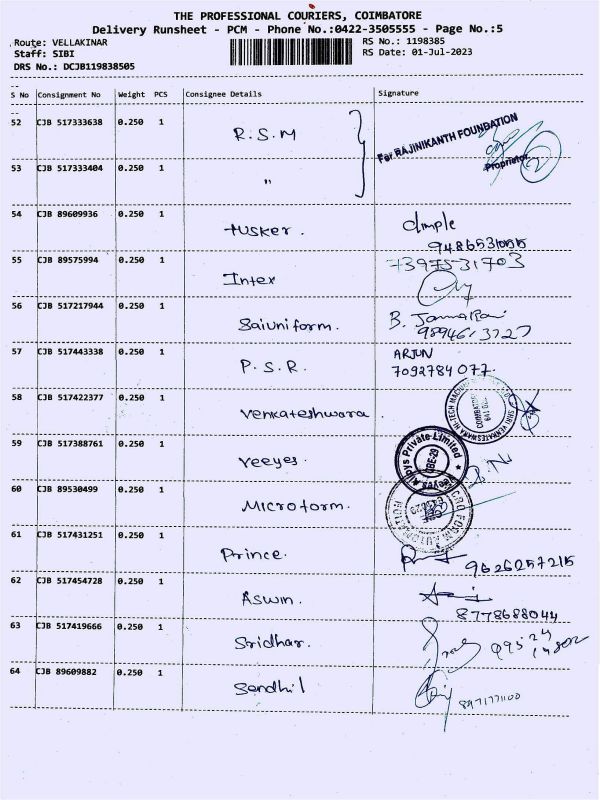 THE PROFESSIONAL COURIERS, COIMBATORE
Delivery Runsheet - PCM - Phone No.:0422-3505555 - Page No.:5
Route: VELLAKINAR RS No.: 1198385
Staff: SIBI RS Date: 01-Jul-2023
DRS No.: DCJB119838505
S No Consignment No Weight PCS Consignee Details Signature
52 CJB 517333638 0.250 1 R.S.M
For RAJINIKANTH FOUNDATION
Proprietor
53 CJB 517333404 0.250 1 "
54 CJB 89609936 0.250 1 tusker. dimple
55 CJB 89575994 0.250 1 Intex
56 CJB 517217944 0.250 1 Saiuniform.
57 CJB 517443338 0.250 1 P.S.R. ARJUN
7092784077.
58 CJB 517422377 0.250 1 Venkateshwara
59 CJB 517388761 0.250 1 Veeyes.
60 CJB 89530499 0.250 1 Microform.
61 CJB 517431251 0.250 1 Prince. 9626257215
62 CJB 517454728 0.250 1 Aswin.
8778688044
63 CJB 517419666 0.250 1 Sridhar.
64 CJB 89609882 0.250 1 Sendhil